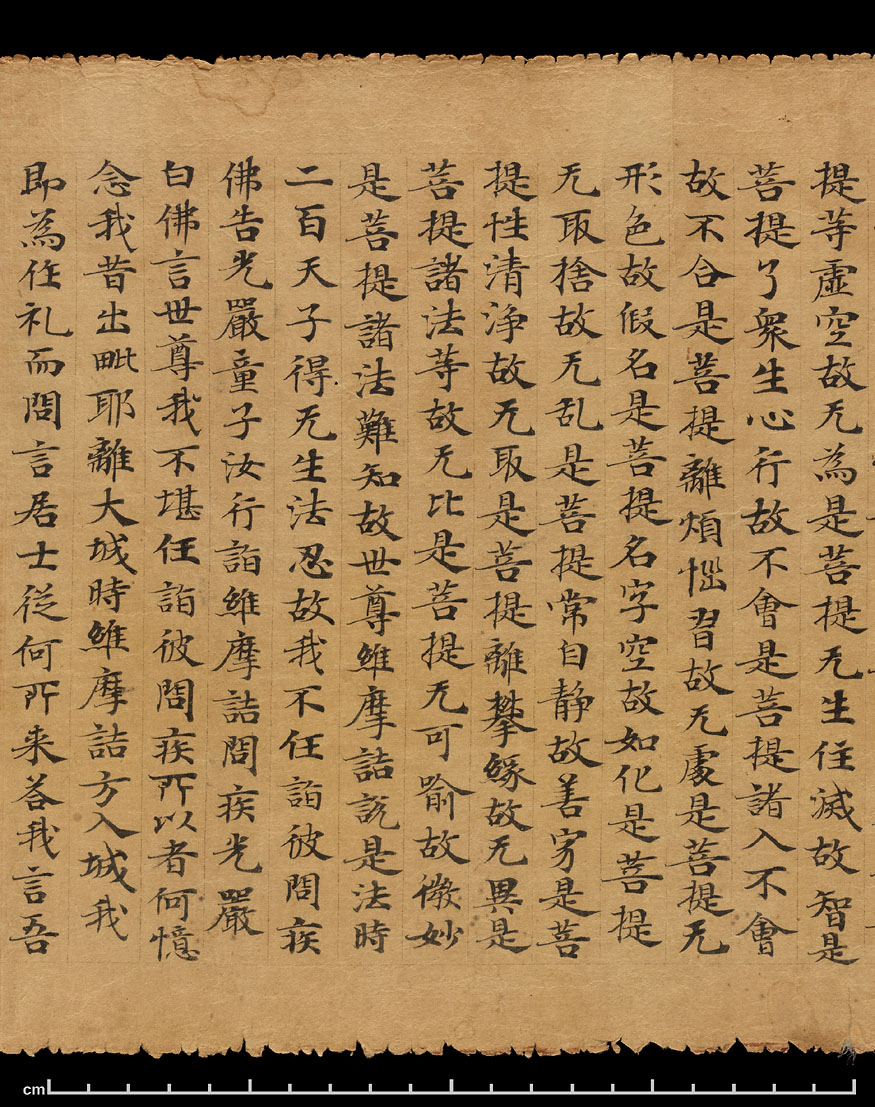 提等虚空故无為是菩提无生住滅故智是
菩提了衆生心行故不會是菩提諸入不會
故不合是菩提離煩惱習故无處是菩提无
形色故假名是菩提名字空故如化是菩提
无取捨故无乱是菩提常自静故善寂是菩
提性清淨故无取是菩提離攀緣故无異是
菩提諸法等故无比是菩提无可喻故微妙
是菩提諸法難知故世尊維摩詰說是法時
二百天子得无生法忍故我不任詣彼問疾
佛告光嚴童子汝行詣維摩詰問疾光嚴
白佛言世尊我不堪任詣彼問疾所以者何憶
念我昔出毗耶離大城時維摩詰方入城我
即為作礼而問言居士從何所来答我言吾
cm